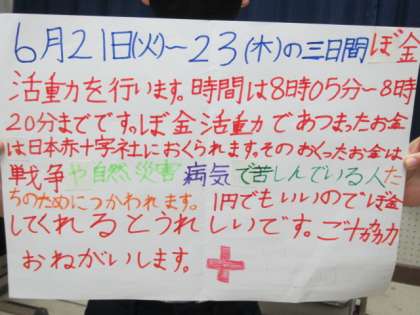 6月21日(火)～23(木)の三日間ぼ金
活動力を行います。時間は8時05分～8時
20分までです。ぼ金活動力であつまったお金
は日本赤十字社におくられます。そのおくったお金は
戦争や自然災害病気で苦しんでいる人た
ちのためにつかわれます。1円でもいいのでぼ金
してくれるとうれしいです。ご協力
おねがいします。